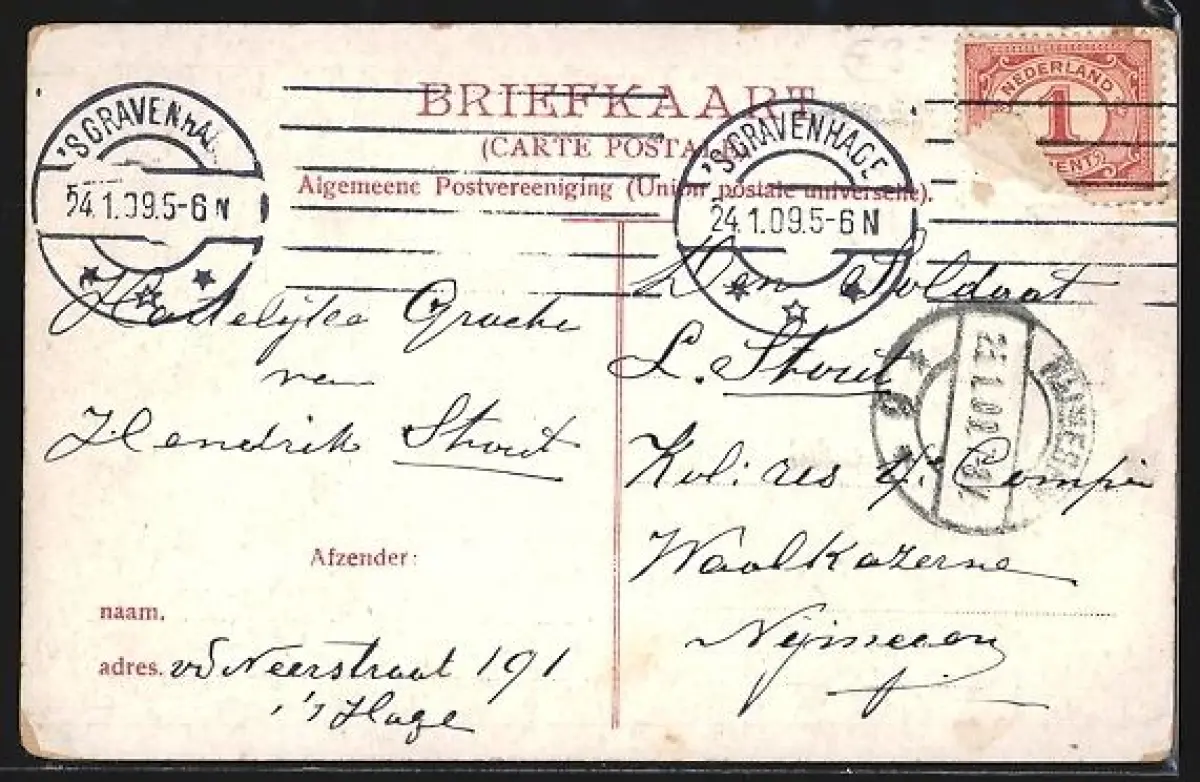 BRIEFKAART
(CARTE POSTALE)
Algemeene Postvereeniging (Union postale universelle).
NEDERLAND
1
CENT
'SGRAVENHA
24.1.09.5-6 N
'SGRAVENHAGE
24.1.09.5-6 N
Hartelijke Groete
van
Hendrik Stout
Afzender:
naam.
adres. vd Neerstraat 191
's Hage
Den Soldaat
L. Stout
Kol: res 4e Compie
Waalkazerne
Nijmegen
NIJMEGEN